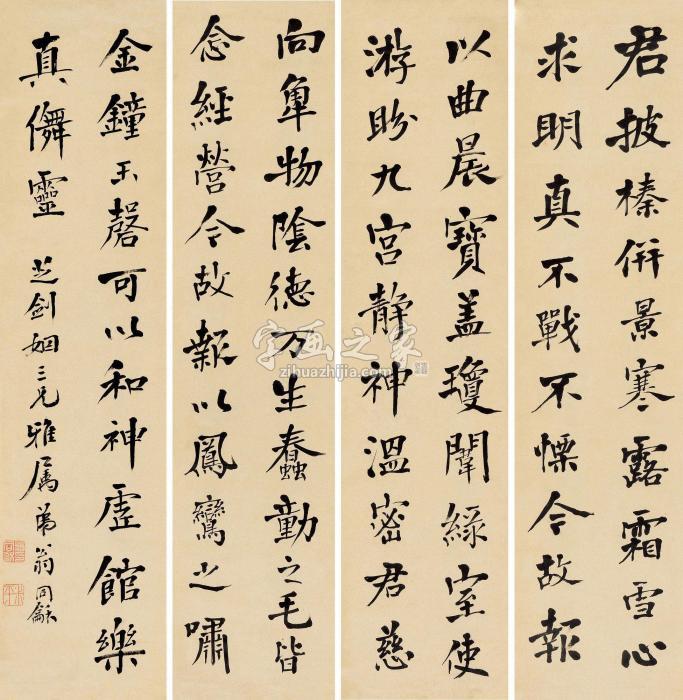 君披榛併景寒露霜雪心
求明真不戰不慄今故報
以曲晨寶盖瓊闈綠室使
游盼九宮静神溫密君慈
向卑物陰德万生蠢動之毛皆
念經營今故報以鳳鸞之嘯
金鐘玉磬可以和神虛館樂
真儛靈 芝劍姻三兄雅属 弟翁同龢
字画之家
zihuazhijia.com